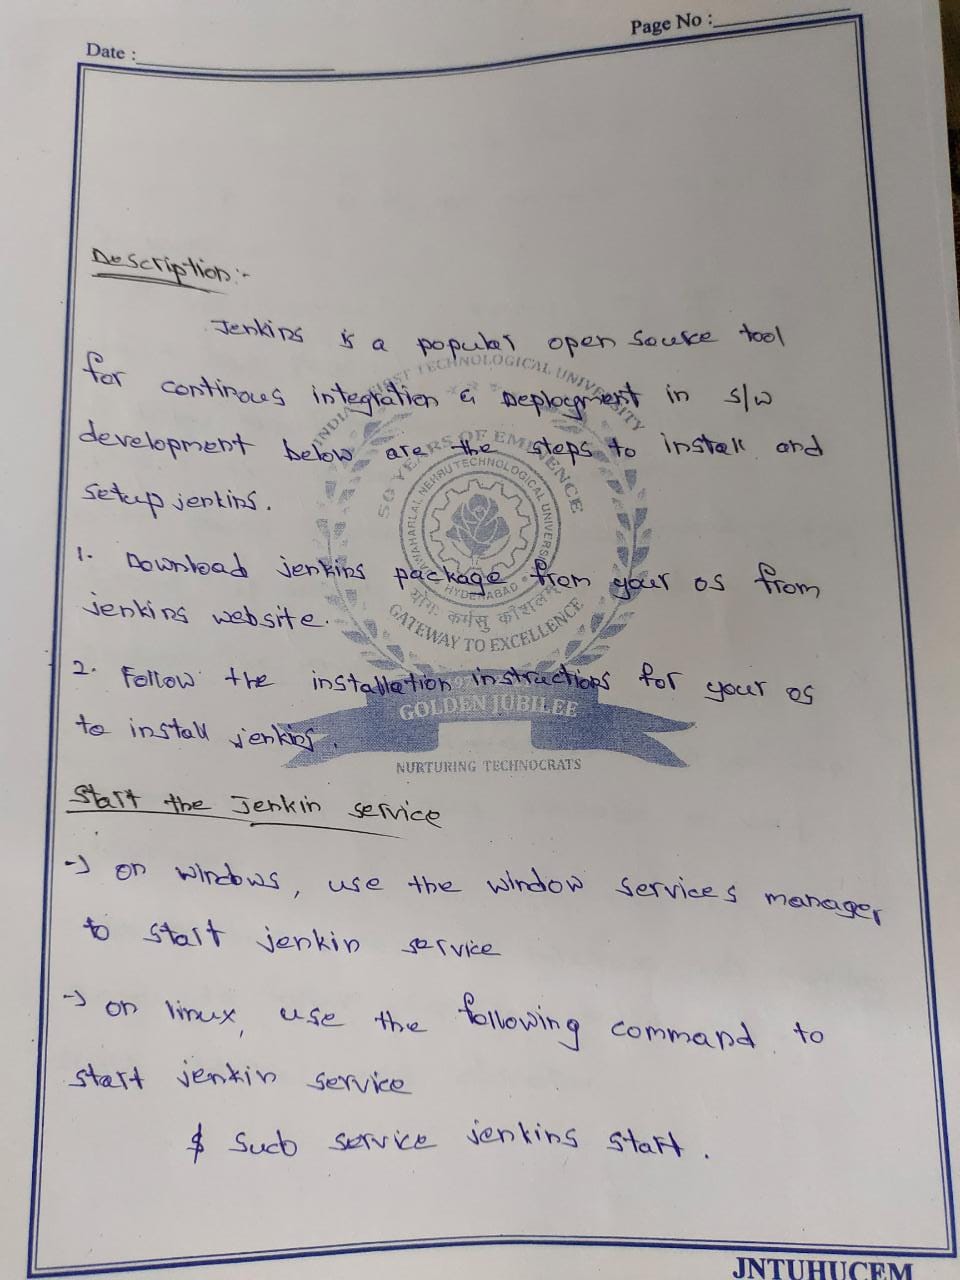 Page No :
Date :
Description:-
Jenkins is a popular open source tool
for continous integration & Deployment in s/w
development below are the steps to install and
setup jenkins.
1. Download jenkins package from your os from
jenkins website.
2. Follow the installation instructions for your os
to install jenkins.
Start the Jenkin service
→ on windows, use the window services manager
to start jenkin service
→ on linux, use the following command to
start jenkin service
$ sudo service jenkins start.
INDIA'S FIRST TECHNOLOGICAL UNIVERSITY
50 YEARS OF EMINENCE
JAWAHARLAL NEHRU TECHNOLOGICAL UNIVERSITY
HYDERABAD
योगः कर्मसु कौशलम्
GATEWAY TO EXCELLENCE
GOLDEN JUBILEE
NURTURING TECHNOCRATS
JNTUHUCEM